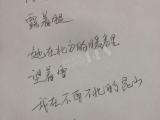 露着腿
她在北方的腾房里
望着雪
我在不雨不北的昆山